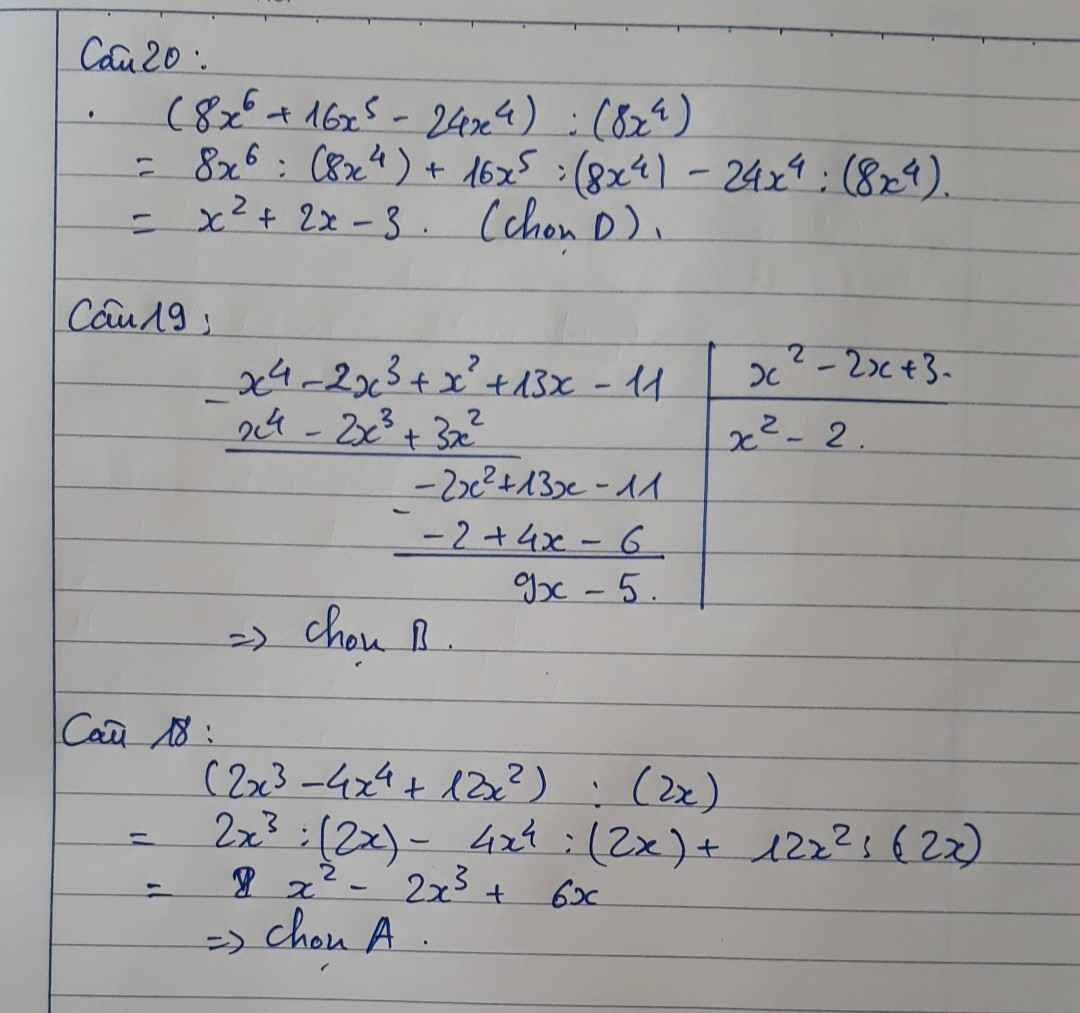 Câu 20 :
. (8x⁶ + 16x⁵ - 24x⁴) : (8x⁴)
= 8x⁶ : (8x⁴) + 16x⁵ : (8x⁴) - 24x⁴ : (8x⁴).
= x² + 2x - 3. (chọn D).
Câu 19 :
x⁴ - 2x³ + x² + 13x - 11 | x² - 2x + 3.
- x⁴ - 2x³ + 3x² | x² - 2.
-2x² + 13x - 11
- -2 + 4x - 6
9x - 5.
=> chọn B.
Câu 18 :
(2x³ - 4x⁴ + 12x²) : (2x)
= 2x³ : (2x) - 4x⁴ : (2x) + 12x² : (2x)
= x² - 2x³ + 6x
=> chọn A.